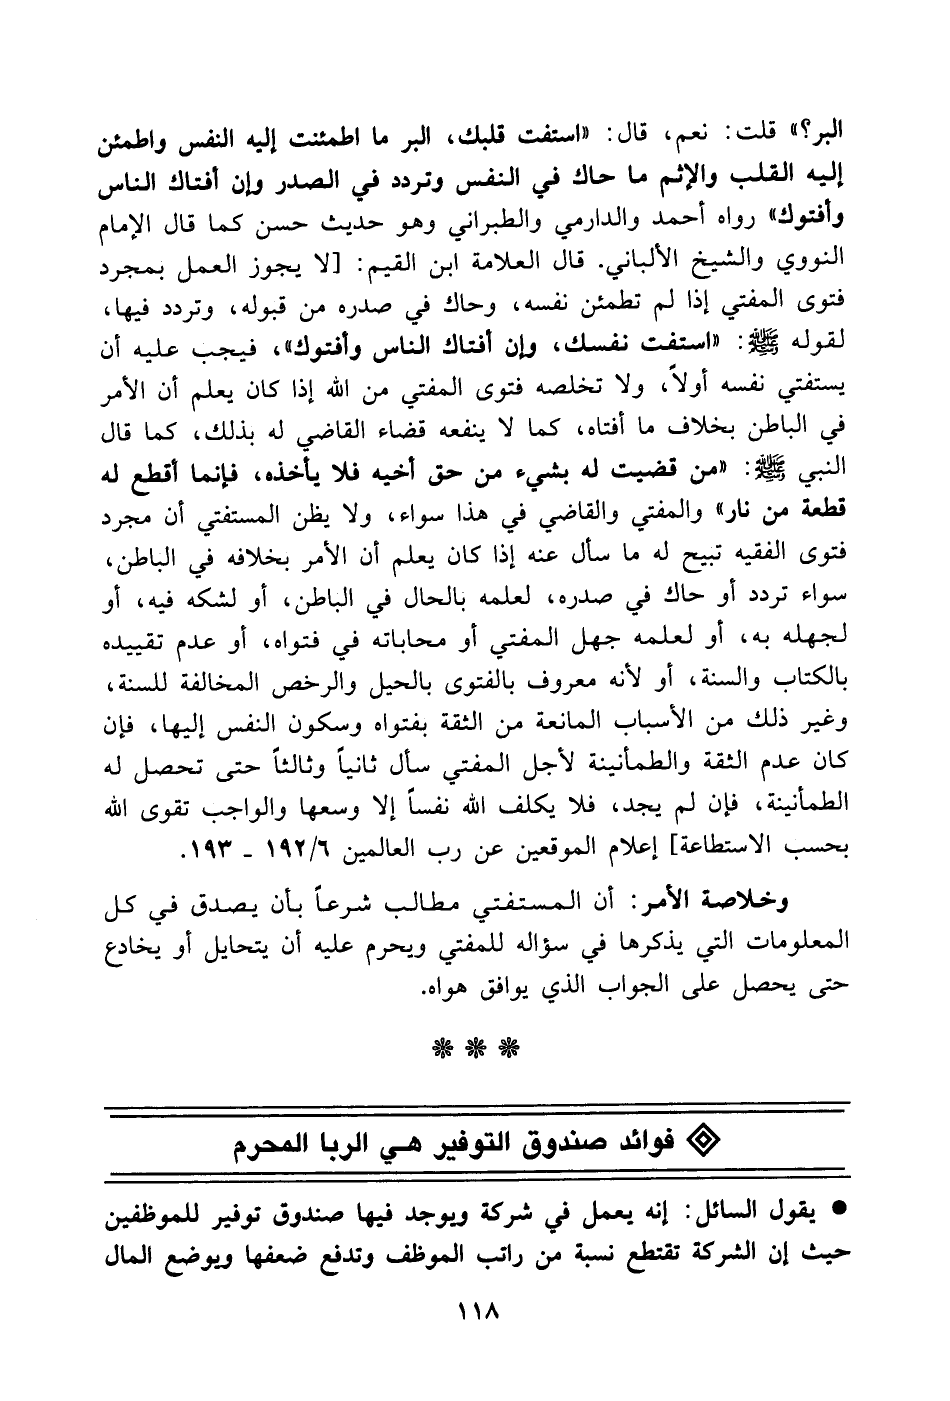 البر؟» قلت: نعم، قال: «استفت قلبك، البر ما اطمئنت إليه النفس واطمئن
إليه القلب والإثم ما حاك في النفس وتردد في الصدر وإن أفتاك الناس
وأفتوك» رواه أحمد والدارمي والطبراني وهو حديث حسن كما قال الإمام
النووي والشيخ الألباني. قال العلامة ابن القيم: [لا يجوز العمل بمجرد
فتوى المفتي إذا لم تطمئن نفسه، وحاك في صدره من قبوله، وتردد فيها،
لقوله ﷺ: «استفت نفسك، وإن أفتاك الناس وأفتوك»، فيجب عليه أن
يستفتي نفسه أولاً، ولا تخلصه فتوى المفتي من الله إذا كان يعلم أن الأمر
في الباطن بخلاف ما أفتاه، كما لا ينفعه قضاء القاضي له بذلك، كما قال
النبي ﷺ: «من قضيت له بشيء من حق أخيه فلا يأخذه، فإنما أقطع له
قطعة من نار» والمفتي والقاضي في هذا سواء، ولا يظن المستفتي أن مجرد
فتوى الفقيه تبيح له ما سأل عنه إذا كان يعلم أن الأمر بخلافه في الباطن،
سواء تردد أو حاك في صدره، لعلمه بالحال في الباطن، أو لشكه فيه، أو
لجهله به، أو لعلمه جهل المفتي أو محاباته في فتواه، أو عدم تقييده
بالكتاب والسنة، أو لأنه معروف بالفتوى بالحيل والرخص المخالفة للسنة،
وغير ذلك من الأسباب المانعة من الثقة بفتواه وسكون النفس إليها، فإن
كان عدم الثقة والطمأنينة لأجل المفتي سأل ثانياً وثالثاً حتى تحصل له
الطمأنينة، فإن لم يجد، فلا يكلف الله نفساً إلا وسعها والواجب تقوى الله
بحسب الاستطاعة] إعلام الموقعين عن رب العالمين ١٩٢/٦ ـ ١٩٣.
وخلاصة الأمر: أن المستفتي مطالب شرعاً بأن يصدق في كل
المعلومات التي يذكرها في سؤاله للمفتي ويحرم عليه أن يتحايل أو يخادع
حتى يحصل على الجواب الذي يوافق هواه.
❊ ❊ ❊
فوائد صندوق التوفير هي الربا المحرم
● يقول السائل: إنه يعمل في شركة ويوجد فيها صندوق توفير للموظفين
حيث إن الشركة تقتطع نسبة من راتب الموظف وتدفع ضعفها ويوضع المال
١١٨